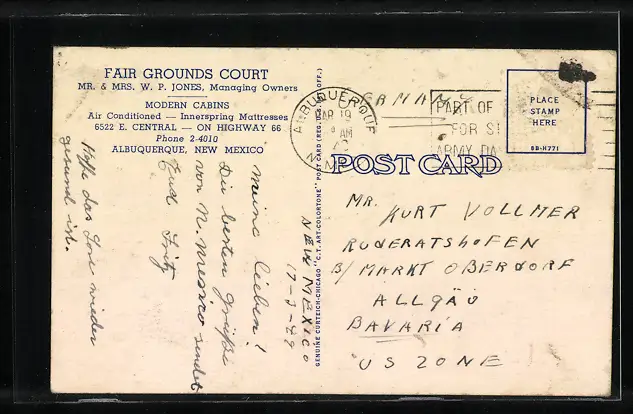 FAIR GROUNDS COURT
MR. & MRS. W. P. JONES, Managing Owners
MODERN CABINS
Air Conditioned — Innerspring Mattresses
6522 E. CENTRAL — ON HIGHWAY 66
Phone 2-4010
ALBUQUERQUE, NEW MEXICO
Meine lieben!
Die besten Grüße
von N. Mexico sendet
Euch Fritz
Hoffe das Lore wieder
gesund ist.
NEW MEXICO
17-3-49
GENUINE CURTEICH-CHICAGO "C.T. ART-COLORTONE" POST CARD (REG. U.S. PAT. OFF.)
ALBUQUERQUE
MAR 19
AM
N. M
GERMANY
PART OF
FOR
ARMY DA
PLACE
STAMP
HERE
9B-H771
POST CARD
MR. KURT VOLLMER
RUDERATSHOFEN
B/ MARKT OBERDORF
ALLGÄU
BAVARIA
US ZONE